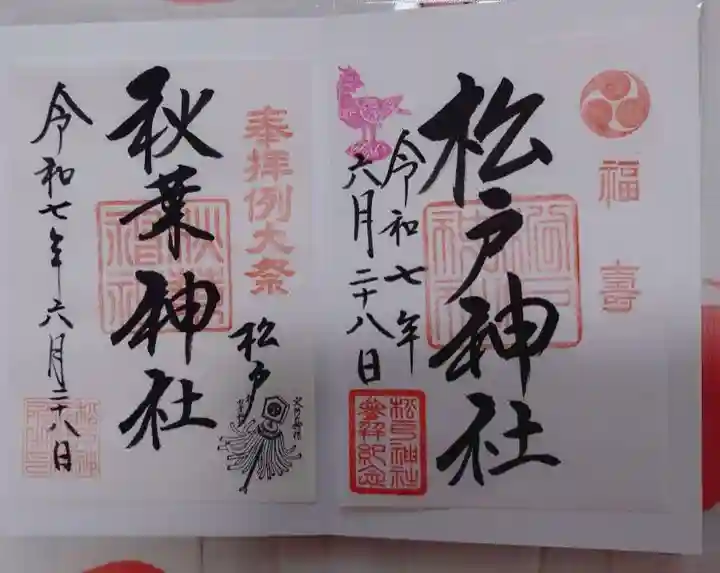 福寿
松戸神社
令和七年
六月二十八日
松戸神社
参拝紀念
奉拝例大祭
松戸
秋葉神社
令和七年六月二十八日